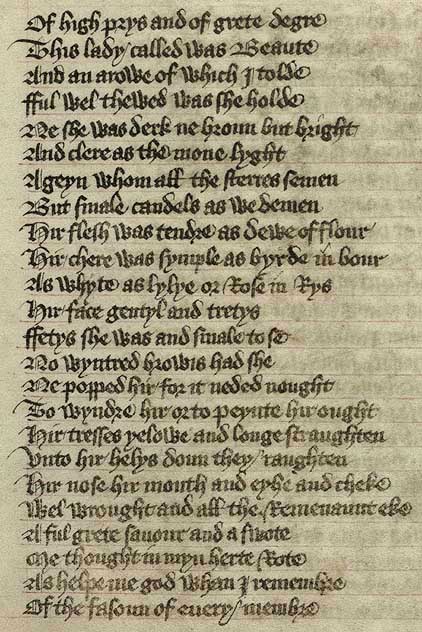 Of high prys and of grete degre
This lady called was Beaute
And an arowe of which I tolde
fful wel thewed was she holde
Ne she was derk ne broun but bright
And clere as the mone lyght
Ageyn whom all the sterres semen
But smale candels as we demen
Hir flesh was tendre as dewe of flour
Hir chere was symple as byrde in bour
As whyte as lylye or Rose in Rys
Hir face gentyl and tretys
ffetys she was and smale to se
No wyntred browis had she
Ne popped hir for it neded nought
To wyndre hir or to peynte hir ought
Hir tresses yelowe and longe straughten
Unto hir helys doun they raughten
Hir nose hir mouth and eyhe and cheke
Wel wrought and all the Remenaunt eke
A ful grete savour and a swote
Me thought in myn herte Rote
As helpe me god whan I remembre
Of the fasoun of every membre